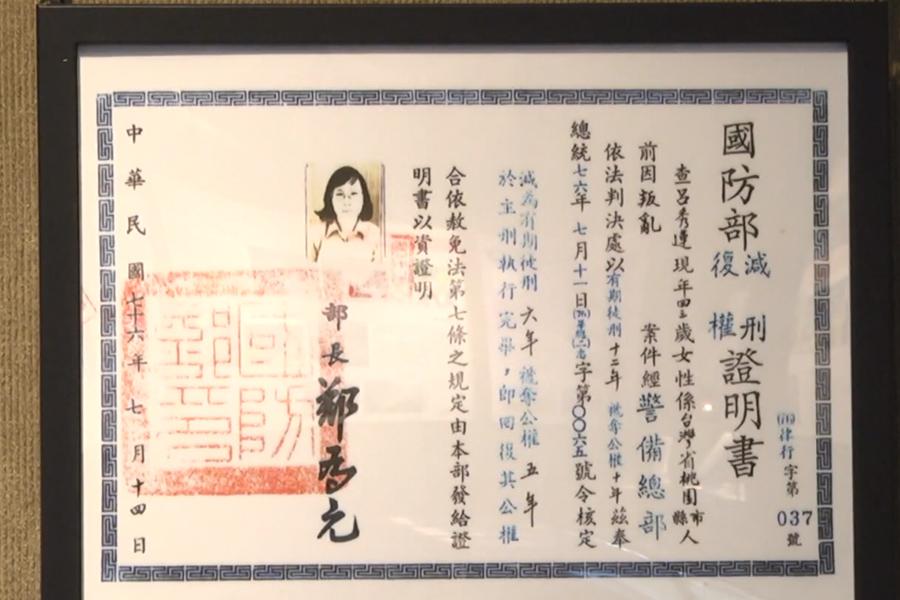 (76)律行字第037號
國防部減刑復權證明書
查呂秀蓮現年四三歲女性係台灣省桃園縣市人
前因叛亂 案件經警備總部
依法判決處以有期徒刑十二年 褫奪公權十年茲奉
總統七六年七月十一日字第〇〇六五號令核定
減為有期徒刑六年褫奪公權五年
於主刑執行完畢，即回復其公權
合依赦免法第七條之規定由本部發給證
明書以資證明
部長 鄭為元
國防部印
中華民國七十六年七月十四日